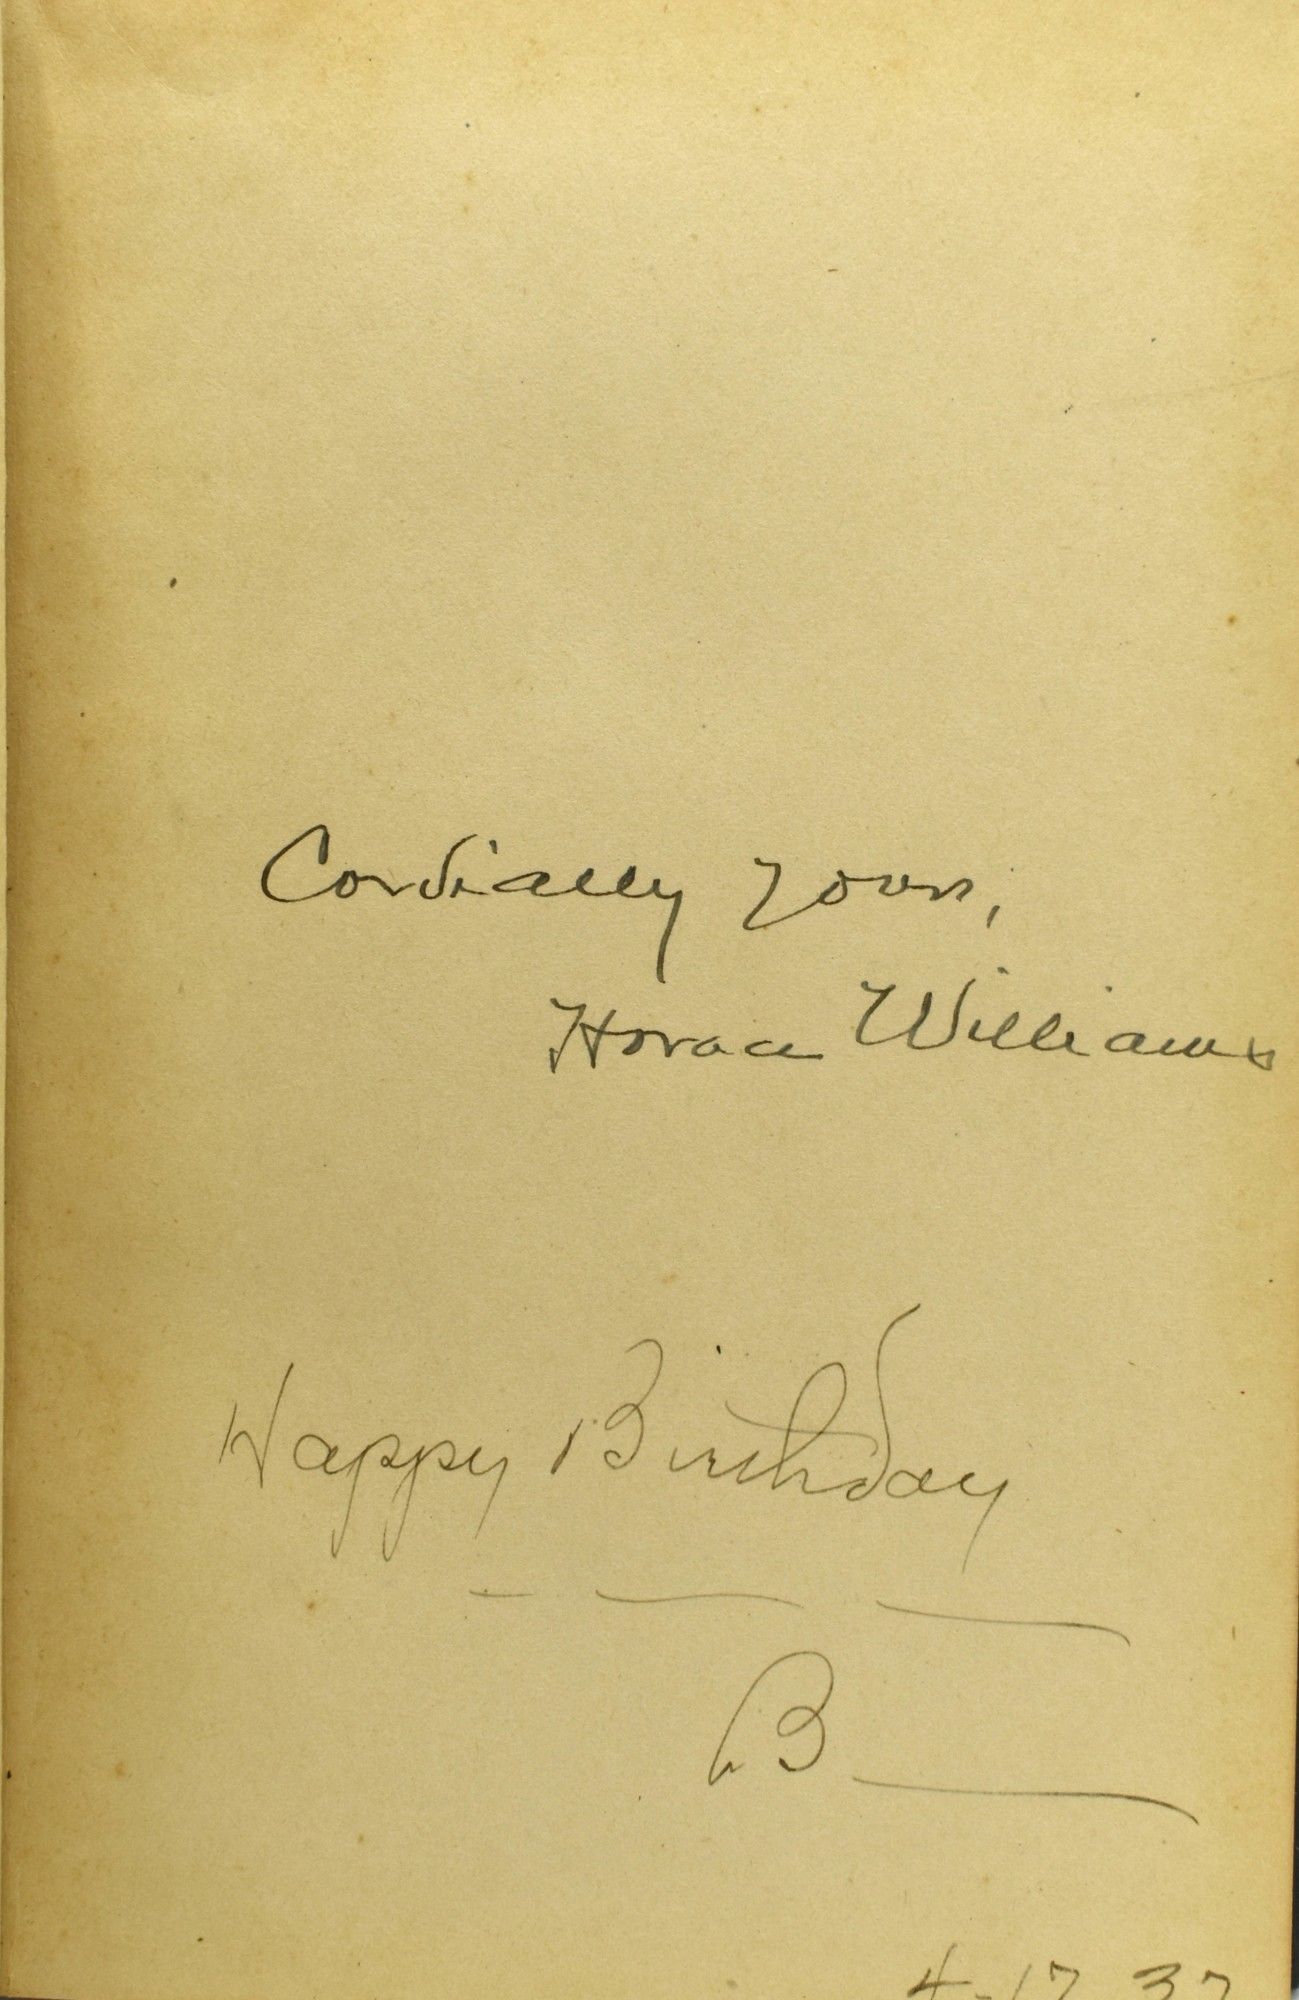 Cordially yours,
Horace Williams
Happy Birthday
B
4-17 37